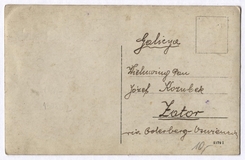 Galicya
Wielmożny Pan
Józef Kozubek
Zator
via Oderberg Oswiencim